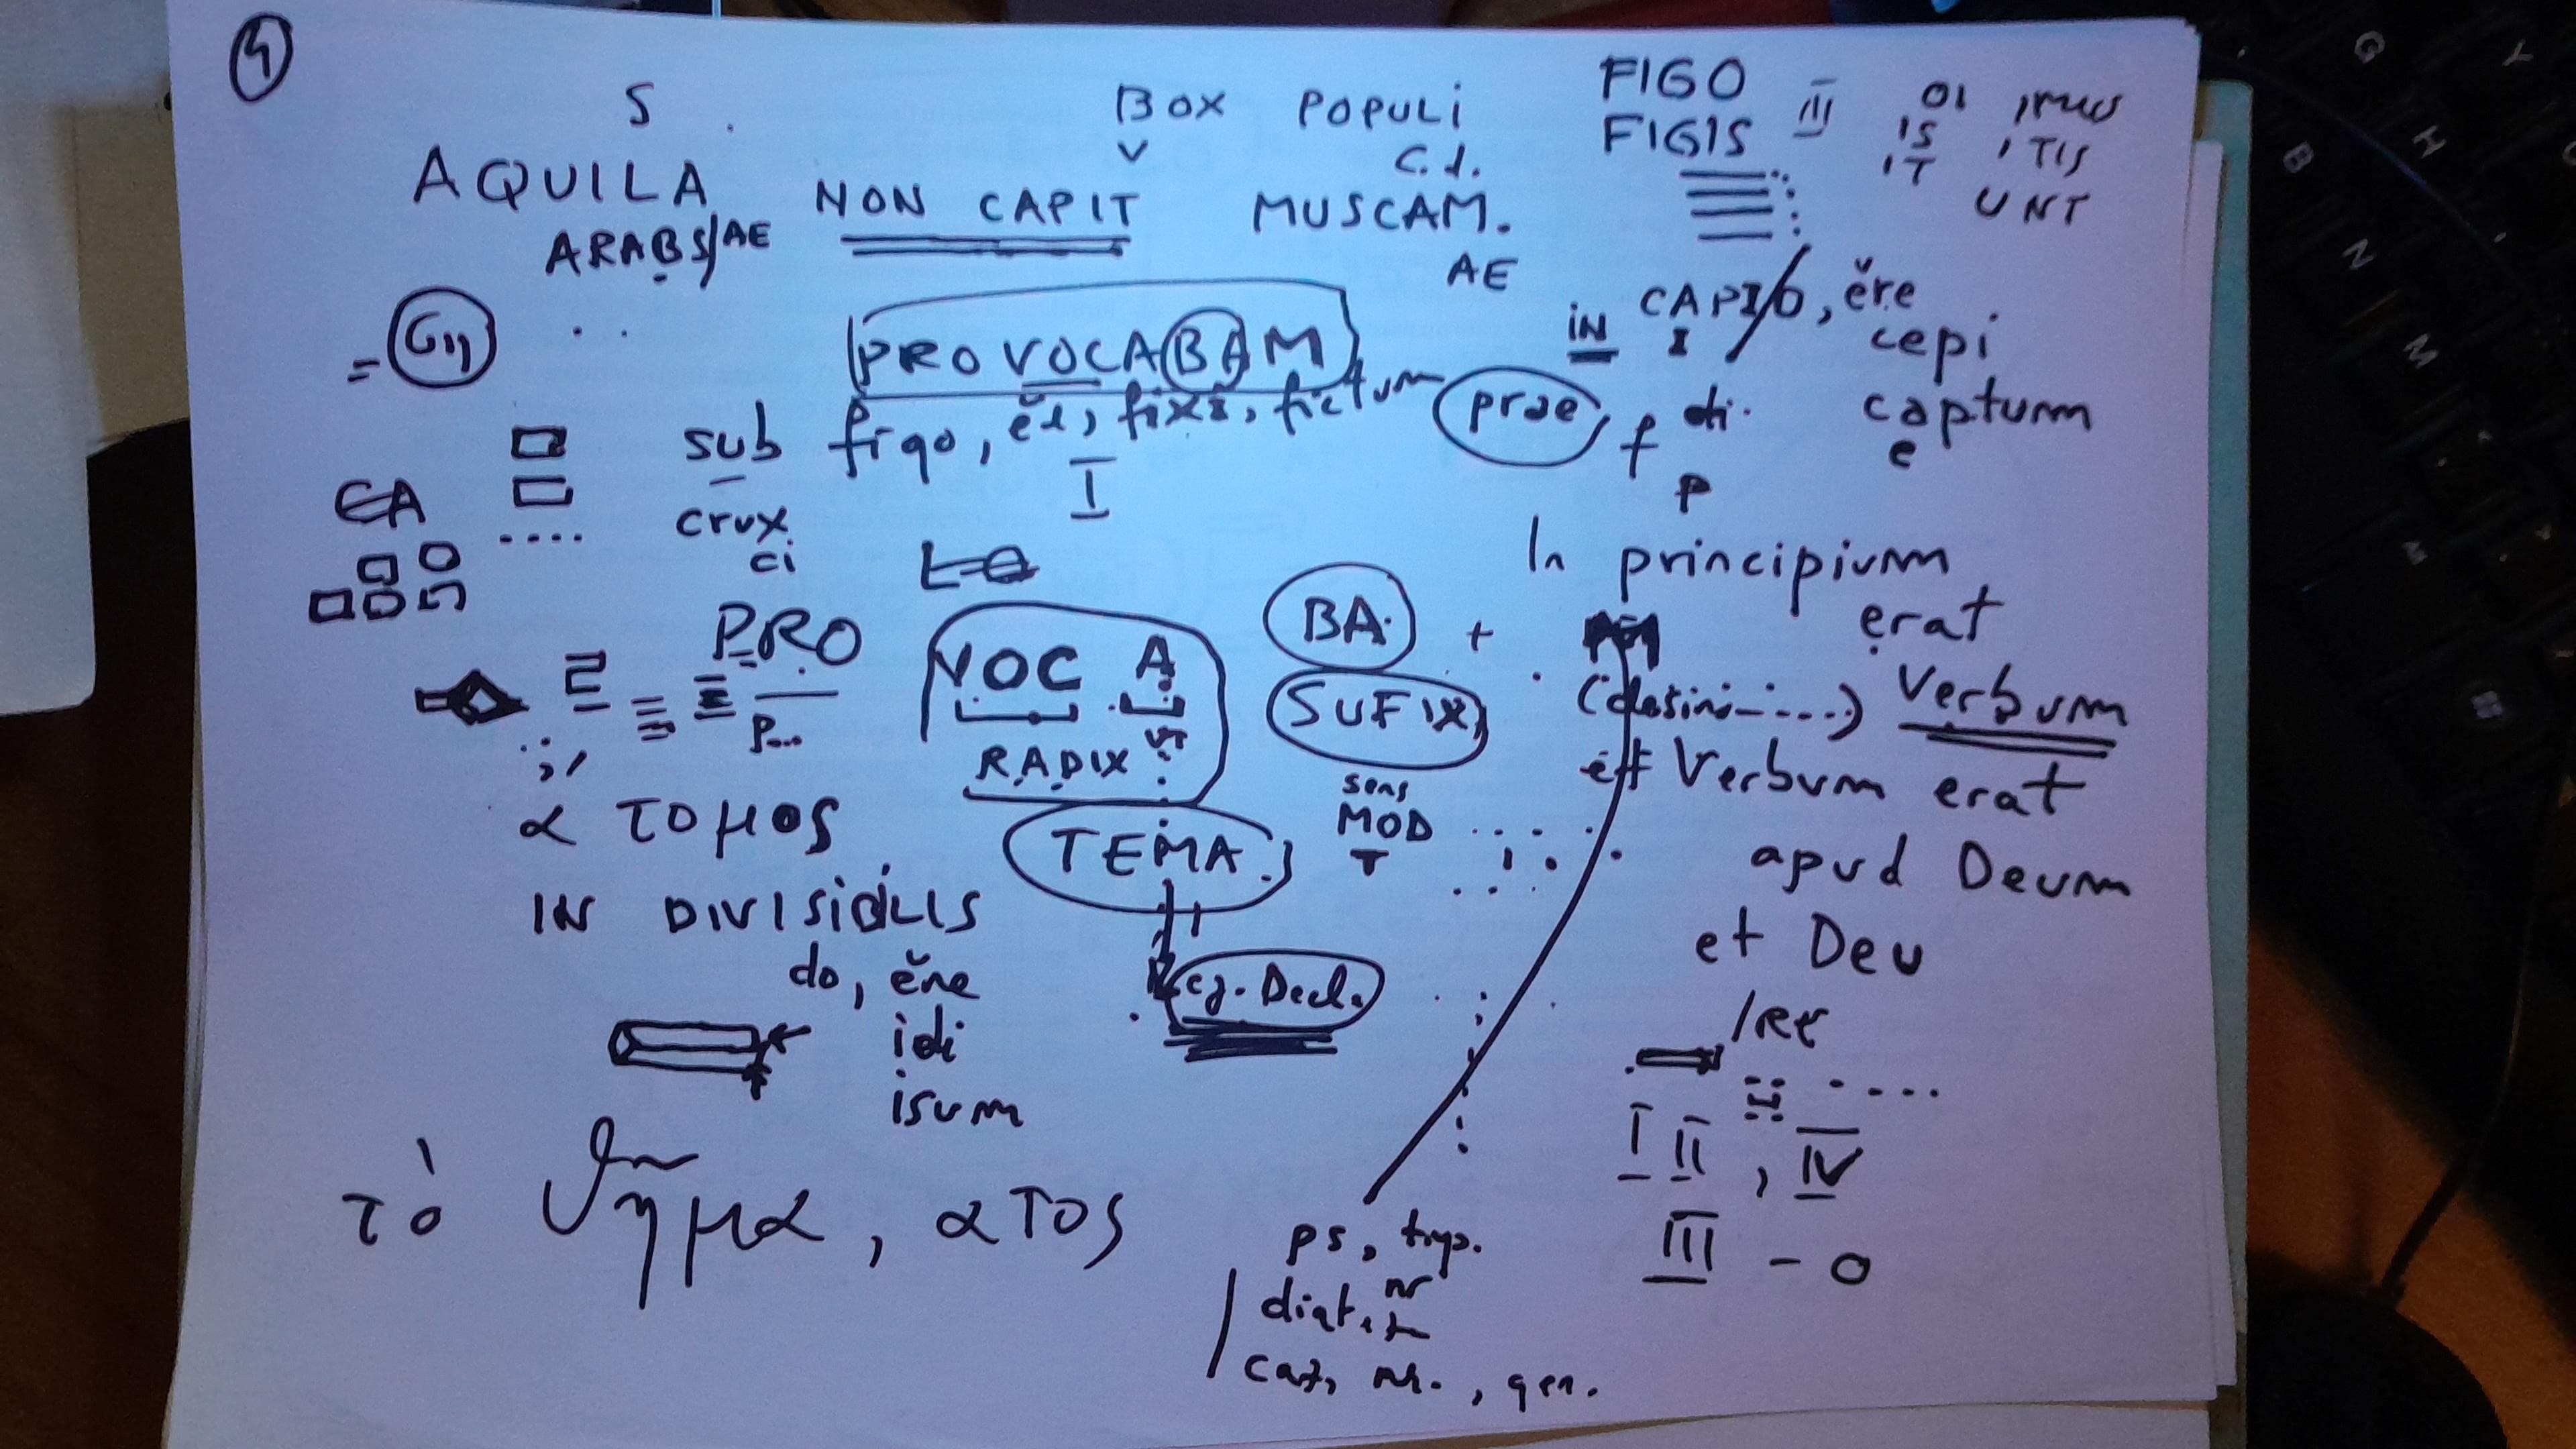 S
BOX POPULI
V
C.d.
FIGO
FIGIS III
IO IMUS
IS ITIS
IT UNT
AQUILA NON CAPIT MUSCAM.
ARABS/AE
AE
PROVOCABAM
IN CAPIO, ĕre
I
cepi
captum
e
sub figo, ĕre, fixi, fictum
I
prae, f di.
p
EA
crux
ci
In principium
erat
Verbum
et Verbum erat
apud Deum
et Deu
PRO VOC A BA. +
P...
RADIX
SUFIX
TEMA
sens
MOD
T
α τομος
IN DIVISIBILIS
do, ĕre
idi
isum
cj. Decl.
IRE
I II, IV
III - O
τὸ θῆμα, ατος
ps, timp.
diat. nr
caz, nr., gen.